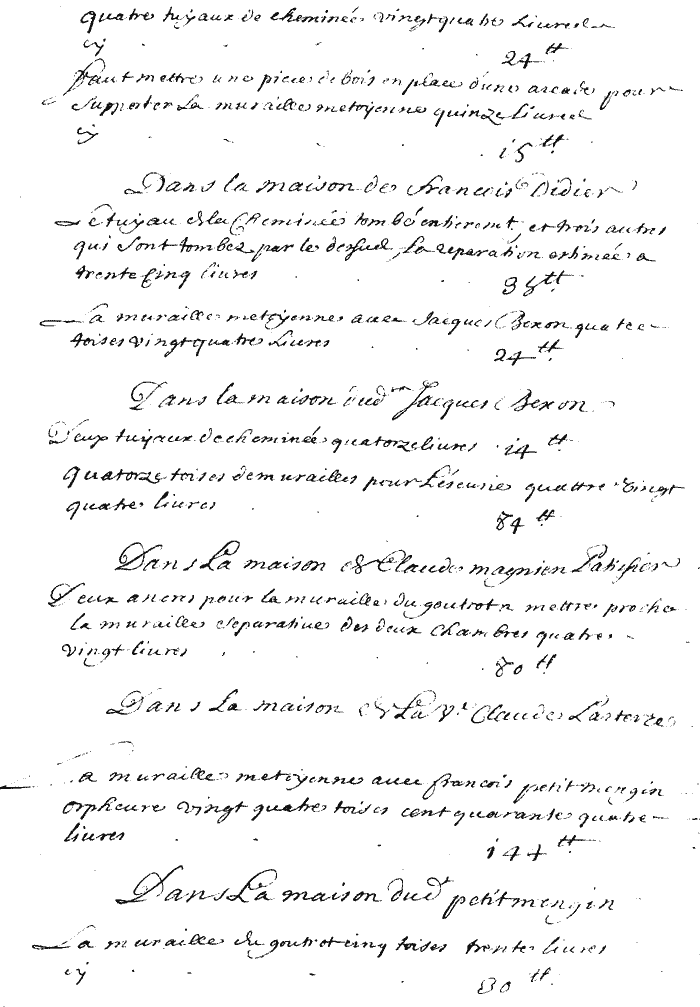 quatre tuyaux de cheminée vingt quatre Livres
cy 24 tt
faut mettre une piece de bois en place d'une arcade pour
supporter La muraille metoyenne quinze Livres
cy 15 tt
Dans la maison de francois Didier
Le tuyau de la Cheminée tombé entierem.t, et trois autres
qui sont tombez par le dessus, la reparation estimée a
trente Cinq livres 35 tt
La muraille metoyenne avec Jacques Bexon quatre
toises vingt quatre Livres 24 tt
Dans la maison dud Jacques Bexon
Deux tuyaux de cheminée quatorze livres 14 tt
quatorze toises de murailles pour L'escurie quattre vingt
quatre livres 84 tt
Dans La maison de Claude magnien Patissier
Deux ancres pour la muraille du goutrot a mettre proche
la muraille separative des deux chambres quatre
vingt livres 80 tt
Dans La maison de La v.e Claude Lasterre
La muraille metoyenne avec francois petit mengin
orpheure vingt quatre toises cent quarante quatre
livres 144 tt
Dans La maison dud.t petit mengin
La muraille du goutrot cinq toises trente livres
cy 30 tt